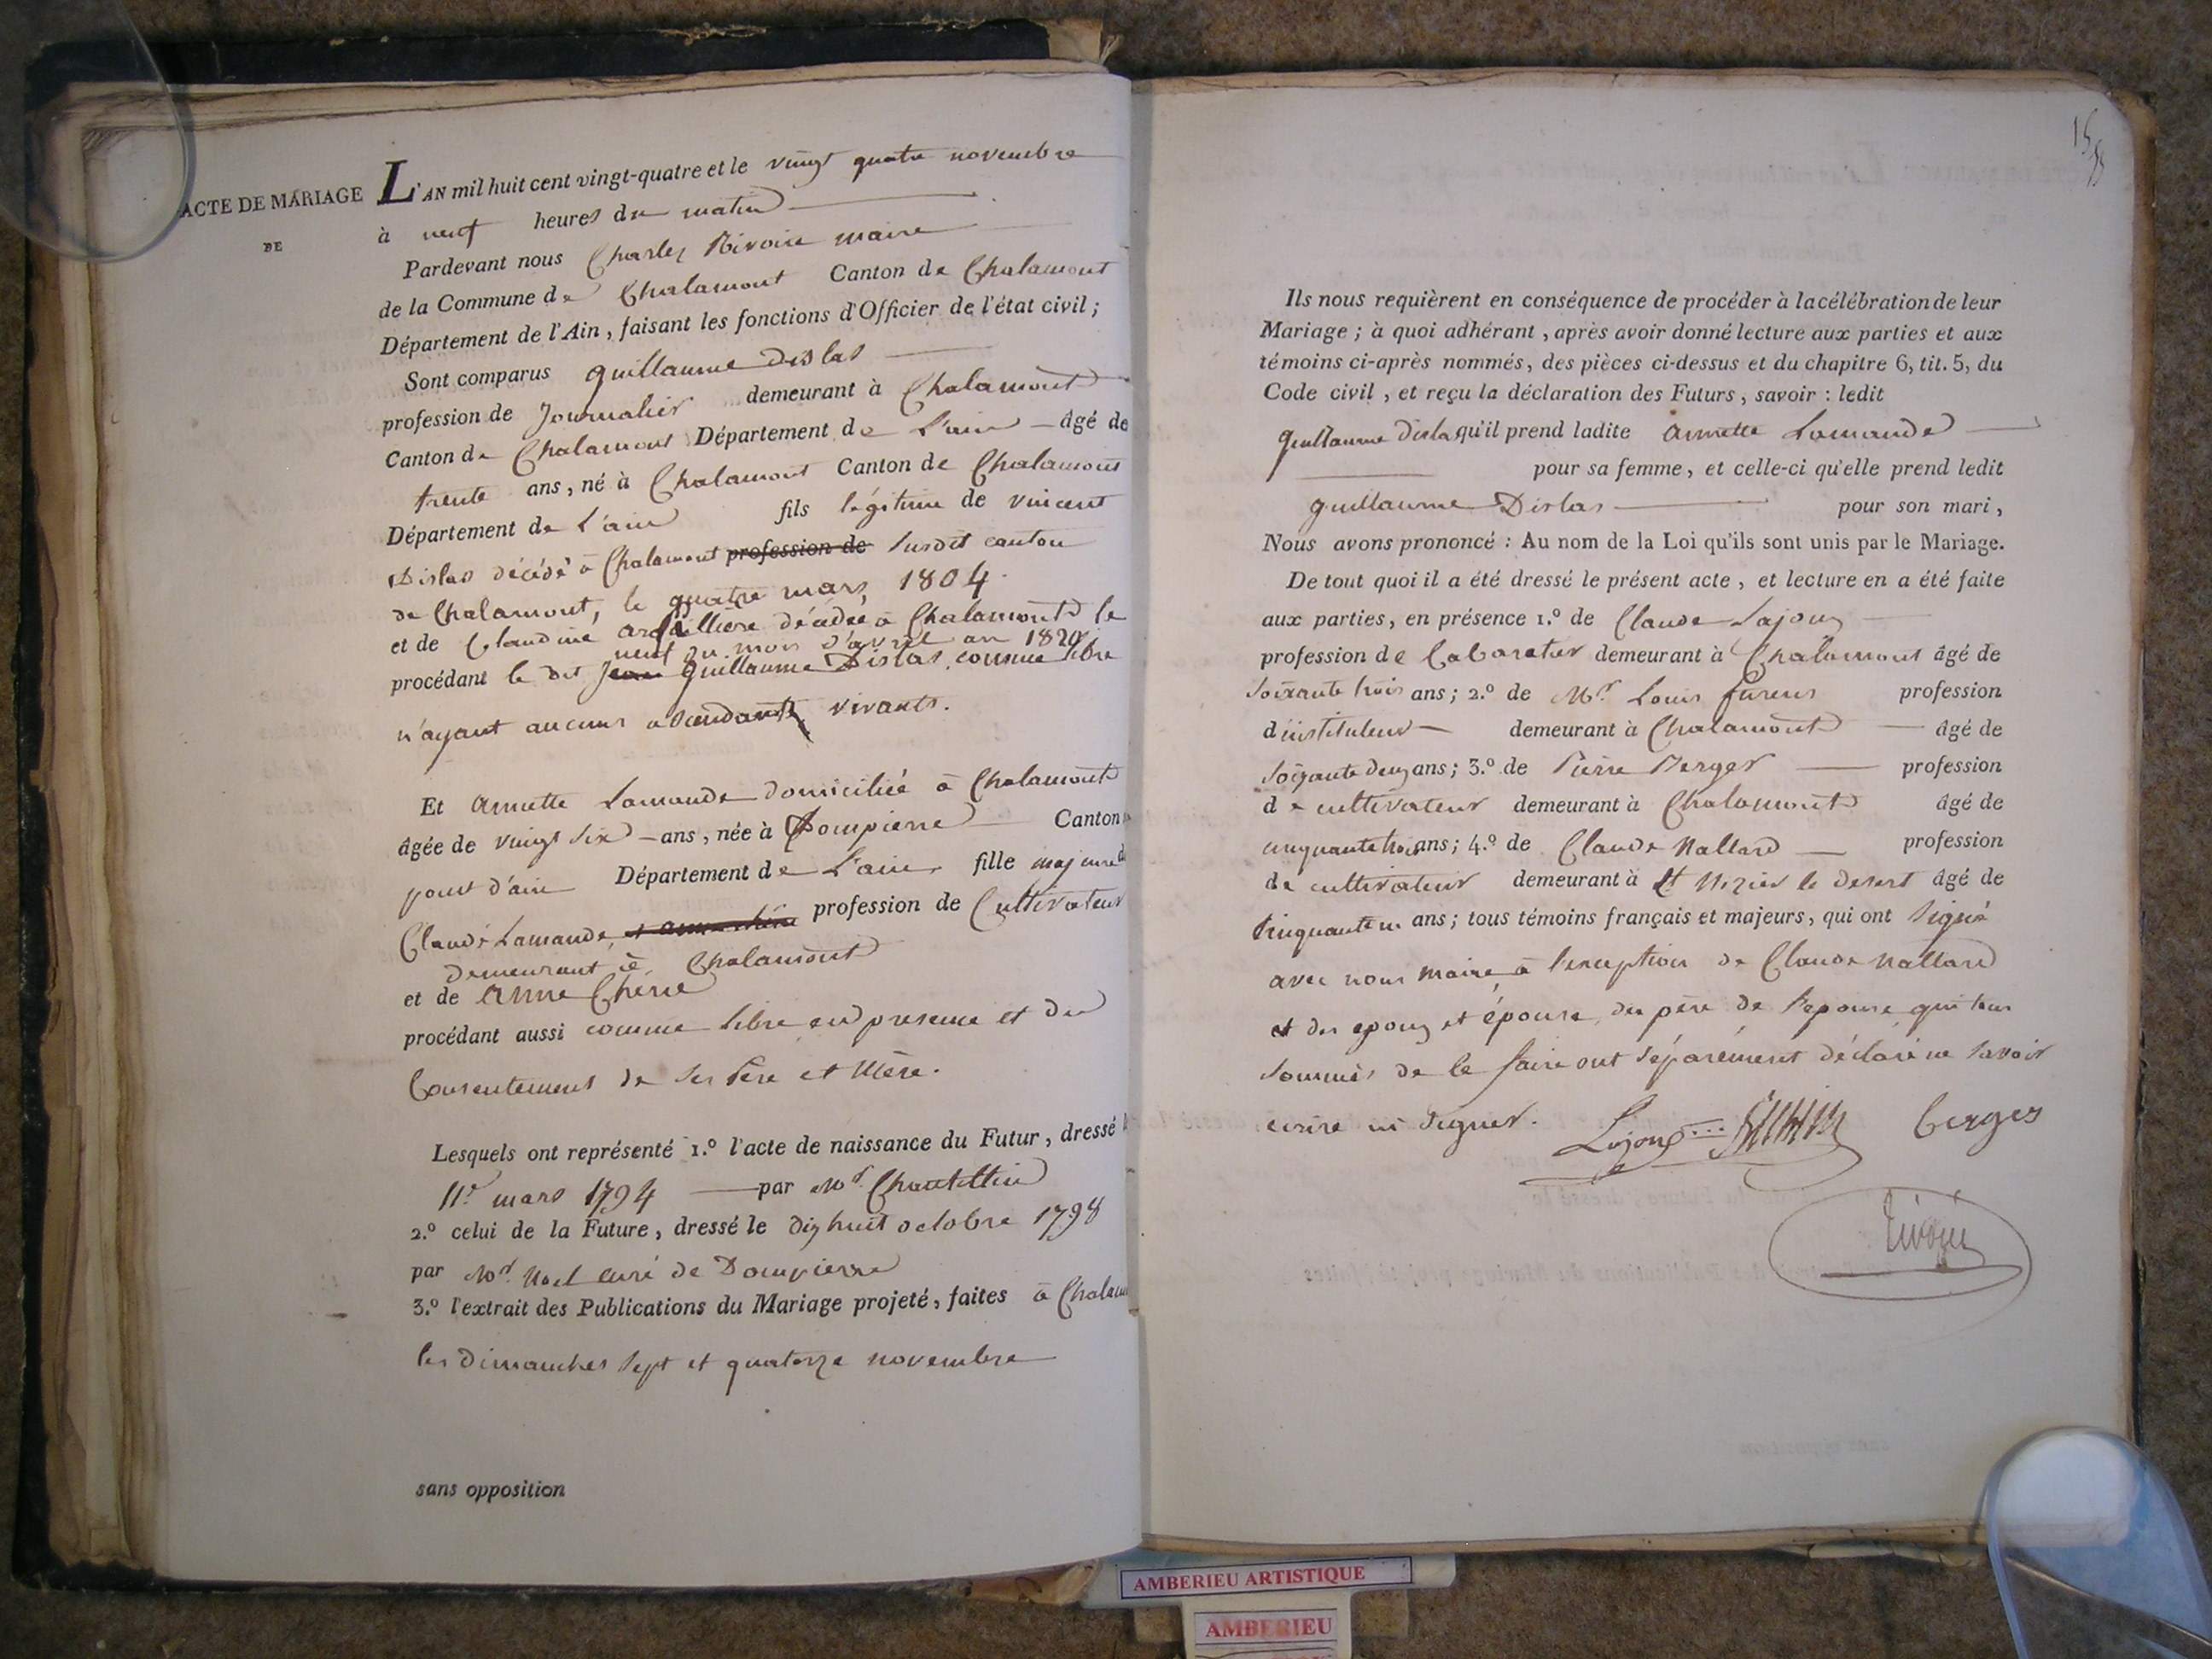 ACTE DE MARIAGE
DE
L'AN mil huit cent vingt-quatre et le vingt quatre novembre
à neuf heures du matin
Pardevant nous Charles Rivoire maire
de la Commune de Chalamont Canton de Chalamont
Département de l'Ain, faisant les fonctions d'Officier de l'état civil ;
Sont comparus guillaume Dislas
profession de Journalier demeurant à Chalamont
Canton de Chalamont Département de L'ain âgé de
trente ans, né à Chalamont Canton de Chalamont
Département de L'ain fils légitime de vincent
Dislas décédé à Chalamont profession de susdit canton
de Chalamont, le quatre mars 1804.
et de Claudine décédée à Chalamont le
neuf du mois d'avril an 1820
procédant le dit Jean guillaume Dislas, comme libre
n'ayant aucuns ascendants vivants.
Et Annette Lamande domiciliée à Chalamont
âgée de vingt six ans, née à Dompierre Canton
pont d'ain Département de L'ain fille majeure de
Claude Lamande, profession de Cultivateur
demeurant à Chalamont
et de Anne Chêne
procédant aussi comme libre en presence et du
Consentement de ses Père et Mère.
Lesquels ont représenté 1.º l'acte de naissance du Futur, dressé l
11e mars 1794 par Mr
2.º celui de la Future, dressé le dix huit octobre 1798
par Mr Noel curé de Dompierre
3.º l'extrait des Publications du Mariage projeté, faites à Chalam
les dimanches sept et quatorze novembre
sans opposition
15
Ils nous requièrent en conséquence de procéder à la célébration de leur
Mariage ; à quoi adhérant, après avoir donné lecture aux parties et aux
témoins ci-après nommés, des pièces ci-dessus et du chapitre 6, tit. 5, du
Code civil, et reçu la déclaration des Futurs, savoir : ledit
guillaume Dislas qu'il prend ladite Annette Lamande
pour sa femme, et celle-ci qu'elle prend ledit
guillaume Dislas pour son mari,
Nous avons prononcé : Au nom de la Loi qu'ils sont unis par le Mariage.
De tout quoi il a été dressé le présent acte, et lecture en a été faite
aux parties, en présence 1.º de Claude Lajoux
profession de Cabaretier demeurant à Chalamont âgé de
soixante trois ans ; 2.º de Mr Louis profession
d'instituteur demeurant à Chalamont âgé de
soixante deux ans ; 3.º de Pierre Berger profession
de cultivateur demeurant à Chalamont âgé de
cinquante trois ans ; 4.º de Claude Nallard profession
de cultivateur demeurant à St Nizier le desert âgé de
Cinquante un ans ; tous témoins français et majeurs, qui ont signé
avec nous maire, à l'exception de Claude Nallard
et des epoux et épouse, du père de l'epouse qui tous
sommés de le faire ont séparément déclaré ne savoir
ecrire ni signer. Lajoux berger
Rivoire
AMBERIEU ARTISTIQUE
AMBERIEU